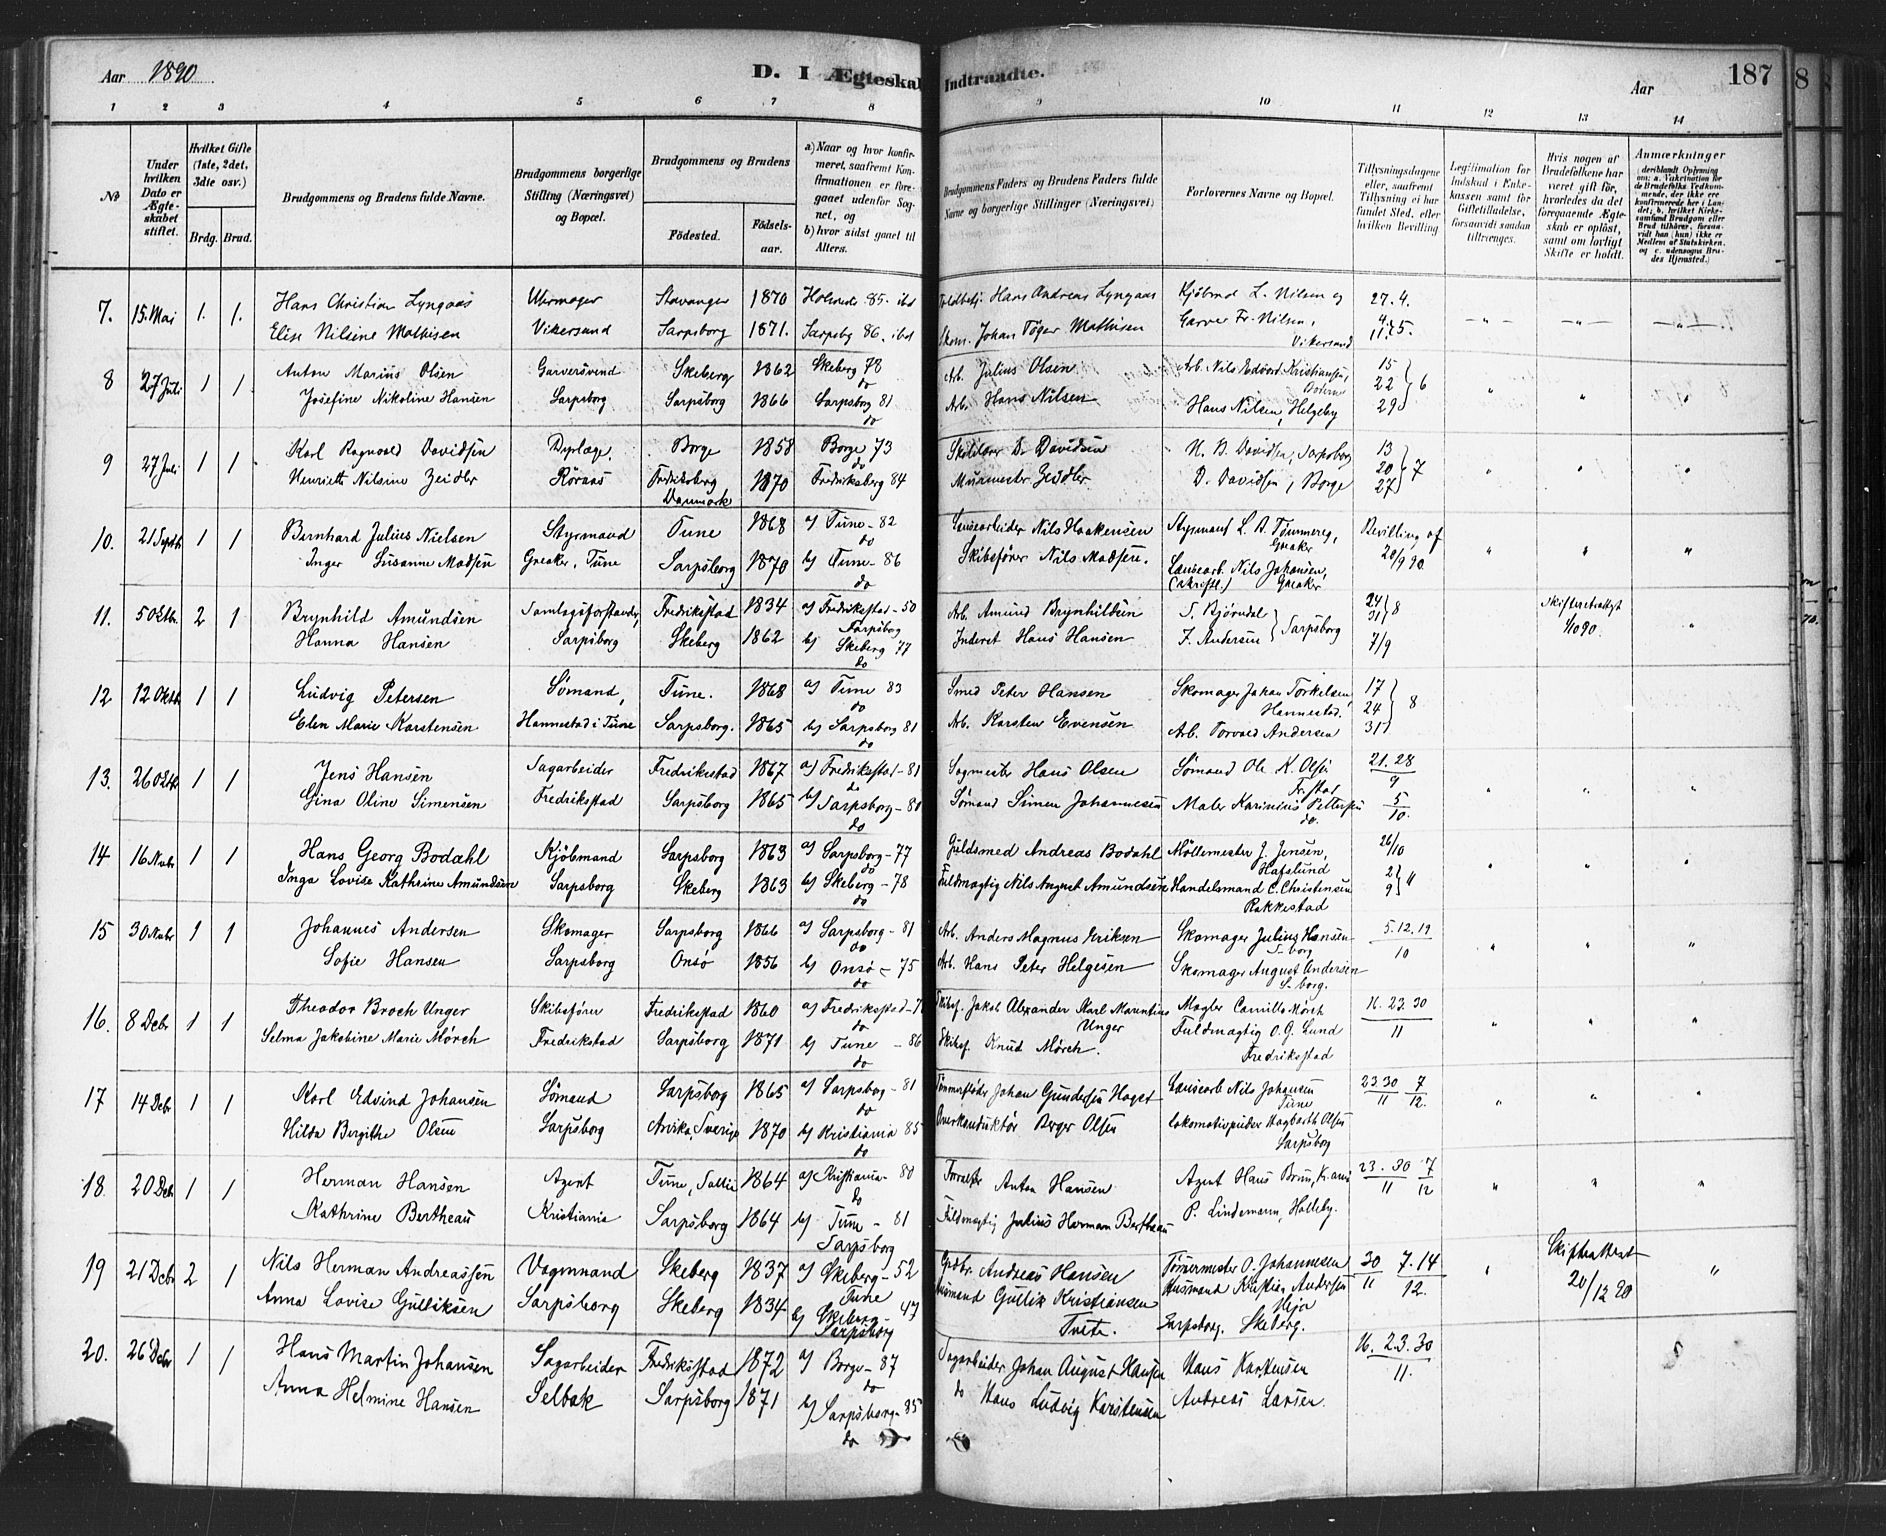 Aar 1890
D. I Ægteskab Indtraadte.
Aar
187
8
1 2 3 4 5 6 7 8 9 10 11 12 13 14
No
Under hvilken Dato er Ægteskabet stiftet.
Hvilket Gifte (1ste, 2det, 3die osv.)
Brdg. Brud.
Brudgommens og Brudens fulde Navne.
Brudgommens borgerlige Stilling (Næringsvei) og Bopæl.
Brudgommens og Brudens
Fødested. Fødselsaar.
a) Naar og hvor konfirmeret, saafremt Konfirmationen er foregaaet udenfor Sognet, og
b) hvor sidst gaaet til Alters.
Brudgommens Faders og Brudens Faders fulde Navne og borgerlige Stillinger (Næringsvei)
Forlovernes Navne og Bopæl.
Tillysningsdagene eller, saafremt Tillysning ei har fundet Sted, efter hvilken Bevilling
Legitimation for Indskud i Enkekassen samt for Giftetilladelse, forsaavidt saadan tiltrænges.
Hvis nogen af Brudefolkene har været gift før, hvorledes da det foregaaende Ægteskab er opløst, samt om lovligt Skifte er holdt.
Anmærkninger
7. 15. Mai 1. 1. Hans Christian Lyngaas Urmager Stavanger 1870 85. ibd Hans Andreas Lyngaas Kjøbmd L. Nilsen og 27. 4.
Elise Nilsine Mathisen Vikersund Sarpsborg 1871. Sarpsbg 86. ibd Johan Tøger Mathisen Garver Fr. Nilsen, Vikersund 4. 11. 5.
8 27 Juli 1 1 Anton Marius Olsen Garversvend Skeberg 1862 Skeberg 78 do Arb. Julius Olsen Arb. Nils Edvard Kristiansen, 15 22 29 } 6
Josefine Nikoline Hansen Sarpsborg Sarpsborg 1866 Sarpsborg 81 do Arb. Hans Nilsen Hans Nilsen, Helgeby
9 27 Juli 1 1 Karl Ragnvald Davidsen Dyrlæge, Borge 1858 Borge 73 do Skibsfører D. Davidsen N. B. Davidsen, Sarpsborg 13 20 27 } 7
Henriette Nilsine Zeidler Röraas Frederiksberg Danmark 1870 Frederiksberg 84 Murmester Zeidler D. Davidsen, Borge
10. 21 Septb 1 1 Bernhard Julius Nielsen Styrmand Tune 1868 a) Tune - 82 do Landsearbeider Nils Haakensen Styrmand L. A. Greaker Bevilling af
Inger Susanne Madsen Greaker, Tune Sarpsborg 1870 b) Tune - 86 do Skibsfører Nils Madsen. Nils Johansen, (skriftl.) Greaker 20/9 90.
11. 5 Oktbr. 2 1 Brynhild Amundsen Samlagsforstander, Fredriksstad 1834 a) Fredriksstad - 50 Sarpsborg Arb. Amund Brynhildsen S. Bjørndal 24 31 } 8 Skifteattest
Hanna Hansen Sarpsborg Skeberg 1862 b) Skeberg 77 do Inderst Hans Hansen F. Andersen } Sarpsborg 7/9 1/10 90.
12 12 Oktb 1 1 Ludvig Petersen Sømand, Tune. 1868 a) Tune 83 do Smed Peter Hansen Skomager Johan Torkelsen, Hannestad. 17 24 31 } 8
Elen Marie Karstensen Hannestad i Tune Sarpsborg. 1865 b) Sarpsborg 81 do Arb. Karsten Evensen Arb. Torvald Andersen
13. 26 Oktb 1 1 Jens Hansen Sagarbeider Fredrikstad 1867 a) Fredriksstad - 81 do Sagmester Hans Olsen Sømand Ole K. Olsen Fr.stad 21. 28 9
Gina Oline Simensen Fredrikstad Sarpsborg 1865 b) Sarpsborg - 80 do Sømand Simen Johannesen Maler Karinius Pettersen do. 5 10.
14 16 Nvbr 1 1 Hans Georg Bodahl Kjøbmand Sarpsborg 1863 a) Sarpsborg - 77 do Guldsmed Andreas Bodahl Møllemester J. Jensen, Hafslund 26/10
Inga Lovise Kathrine Amundsen Sarpsborg Skeberg 1863 b) Skeberg - 78 do Fuldmægtig Nils August Amundsen Handelsmand C. Christensen Rakkestad 2 9 } 11
15 30 Nvbr 1 1 Johannes Andersen Skomager Sarpsborg 1866 a) Sarpsborg - 81 do Arb. Anders Magnus Eriksen Skomager Julius Hansen S-borg 5. 12. 19
Sofie Hansen Sarpsborg Onsø 1856 b) Onsø - 75 do Arb. Hans Peter Helgesen Skomager August Andersen S-borg. 10
16. 8 Debr 1 1 Theodor Broch Unger Skibsfører Fredriksstad 1860 a) Fredriksstad - do Skibsf. Jakob Alexander Karl Mauritius Unger Mægler Camillo Mørch 16. 23. 30
Selma Jakobine Marie Mørch Fredrikstad Sarpsborg 1871 b) Tune - 86 do Skibsf. Knud Mørch. Fuldmægtig O. G. Lund Fredriksstad 11
17 14 Debr 1 1 Karl Edvind Johansen Sømand Sarpsborg 1865 a) Sarpsborg - 81 do Tømmerfløder Johan Gundersen Haget Nils Johansen Tune 23 30 11 7 12.
Hilda Bergithe Olsen Sarpsborg Arvika, Sverige 1870 b) Kristiania 85 do Overkonduktør Berger Olsen Lokomotivpudser Hagbarth Olsen Sarpsborg
18. 20 Debr 1 1 Herman Hansen Agent Tune, 1864 a) Kristiania - 80 do Anton Hansen Agent Hans Brun, Kr.ania 23. 30 11 7 12
Kathrine Bertheau Kristiania Sarpsborg 1864 b) Tune - 81 Sarpsborg Fuldmægtig Julius Herman Bertheau P. Lindemann, Halleby.
19 21 Debr 2 1 Nils Herman Andreassen Vognmand Skeberg 1837 a) Skeberg - 52 Tune Grdbr. Andreas Hansen Tømmermester O. Johannesen 30 11 7. 14 12. Skifteattest
Anna Lovise Gulliksen Sarpsborg Skeberg 1834 b) Skeberg - 47 Sarpsborg Husmand Gullik Kristiansen Tvete. Husmand Kristian Andersen Sarpsborg. Skeberg. 20/12 90
20. 26 Debr 1 1 Hans Martin Johansen Sagarbeider Fredriksstad 1872 a) Borge - 87 do Sagarbeider Johan August Hansen Hans Karstensen 16. 23. 30
Anna Helmine Hansen Selbak Sarpsborg 1871 b) Sarpsborg 85 do do Hans Ludvig Karstensen Andreas Larsen. 11.